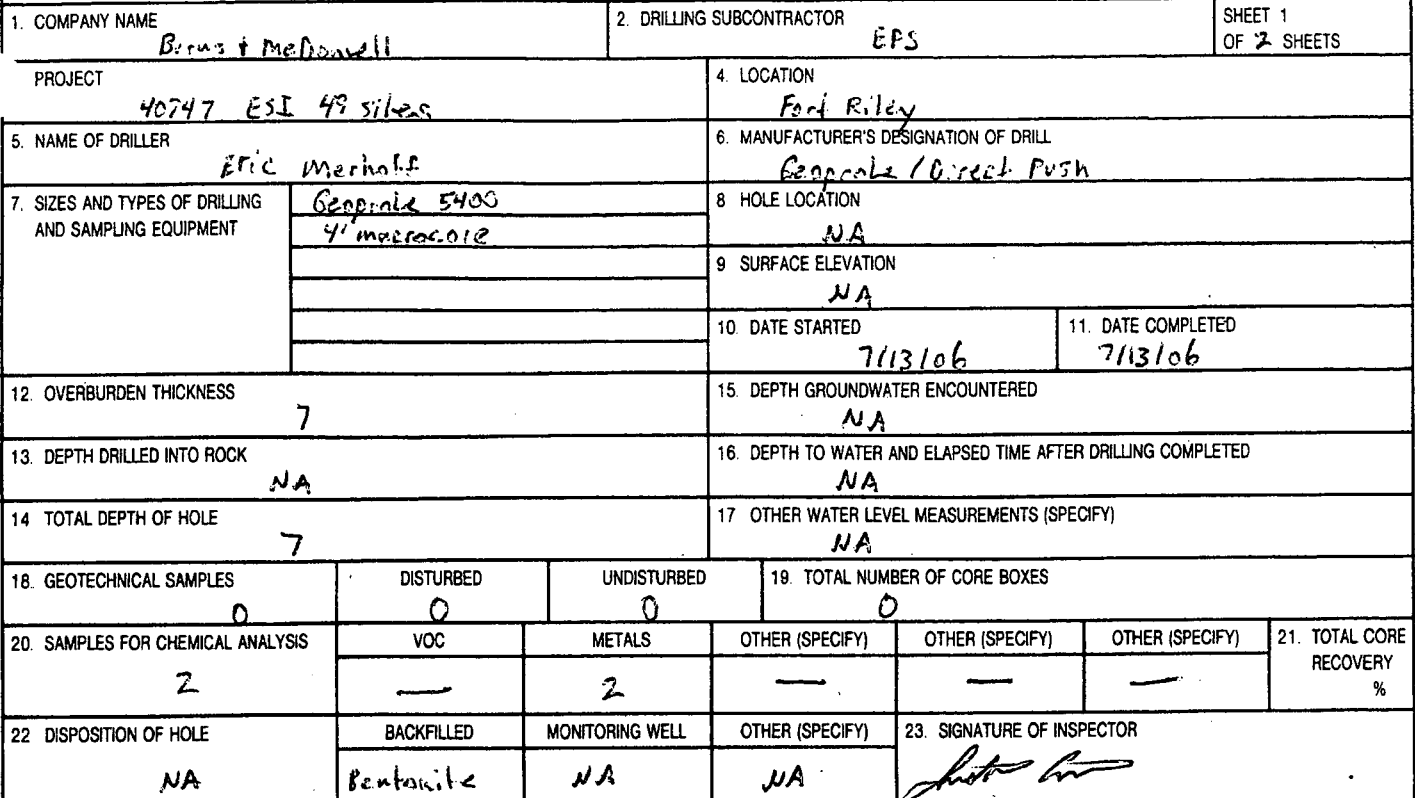 1. COMPANY NAME
Burns & McDonnell
2. DRILLING SUBCONTRACTOR
EPS
SHEET 1
OF 2 SHEETS
PROJECT
40747 ESI 49 sites
4. LOCATION
Fort Riley
5. NAME OF DRILLER
Eric Merhoff
6. MANUFACTURER'S DESIGNATION OF DRILL
Geoprobe / Direct Push
7. SIZES AND TYPES OF DRILLING
AND SAMPLING EQUIPMENT
Geoprobe 5400
4' macrocore
8 HOLE LOCATION
NA
9 SURFACE ELEVATION
NA
10. DATE STARTED
7/13/06
11. DATE COMPLETED
7/13/06
12. OVERBURDEN THICKNESS
7
15. DEPTH GROUNDWATER ENCOUNTERED
NA
13. DEPTH DRILLED INTO ROCK
NA
16. DEPTH TO WATER AND ELAPSED TIME AFTER DRILLING COMPLETED
NA
14 TOTAL DEPTH OF HOLE
7
17 OTHER WATER LEVEL MEASUREMENTS (SPECIFY)
NA
18. GEOTECHNICAL SAMPLES
0
DISTURBED
0
UNDISTURBED
0
19. TOTAL NUMBER OF CORE BOXES
0
20. SAMPLES FOR CHEMICAL ANALYSIS
2
VOC
—
METALS
2
OTHER (SPECIFY)
—
OTHER (SPECIFY)
—
OTHER (SPECIFY)
—
21. TOTAL CORE
RECOVERY
%
22 DISPOSITION OF HOLE
NA
BACKFILLED
Bentonite
MONITORING WELL
NA
OTHER (SPECIFY)
NA
23. SIGNATURE OF INSPECTOR